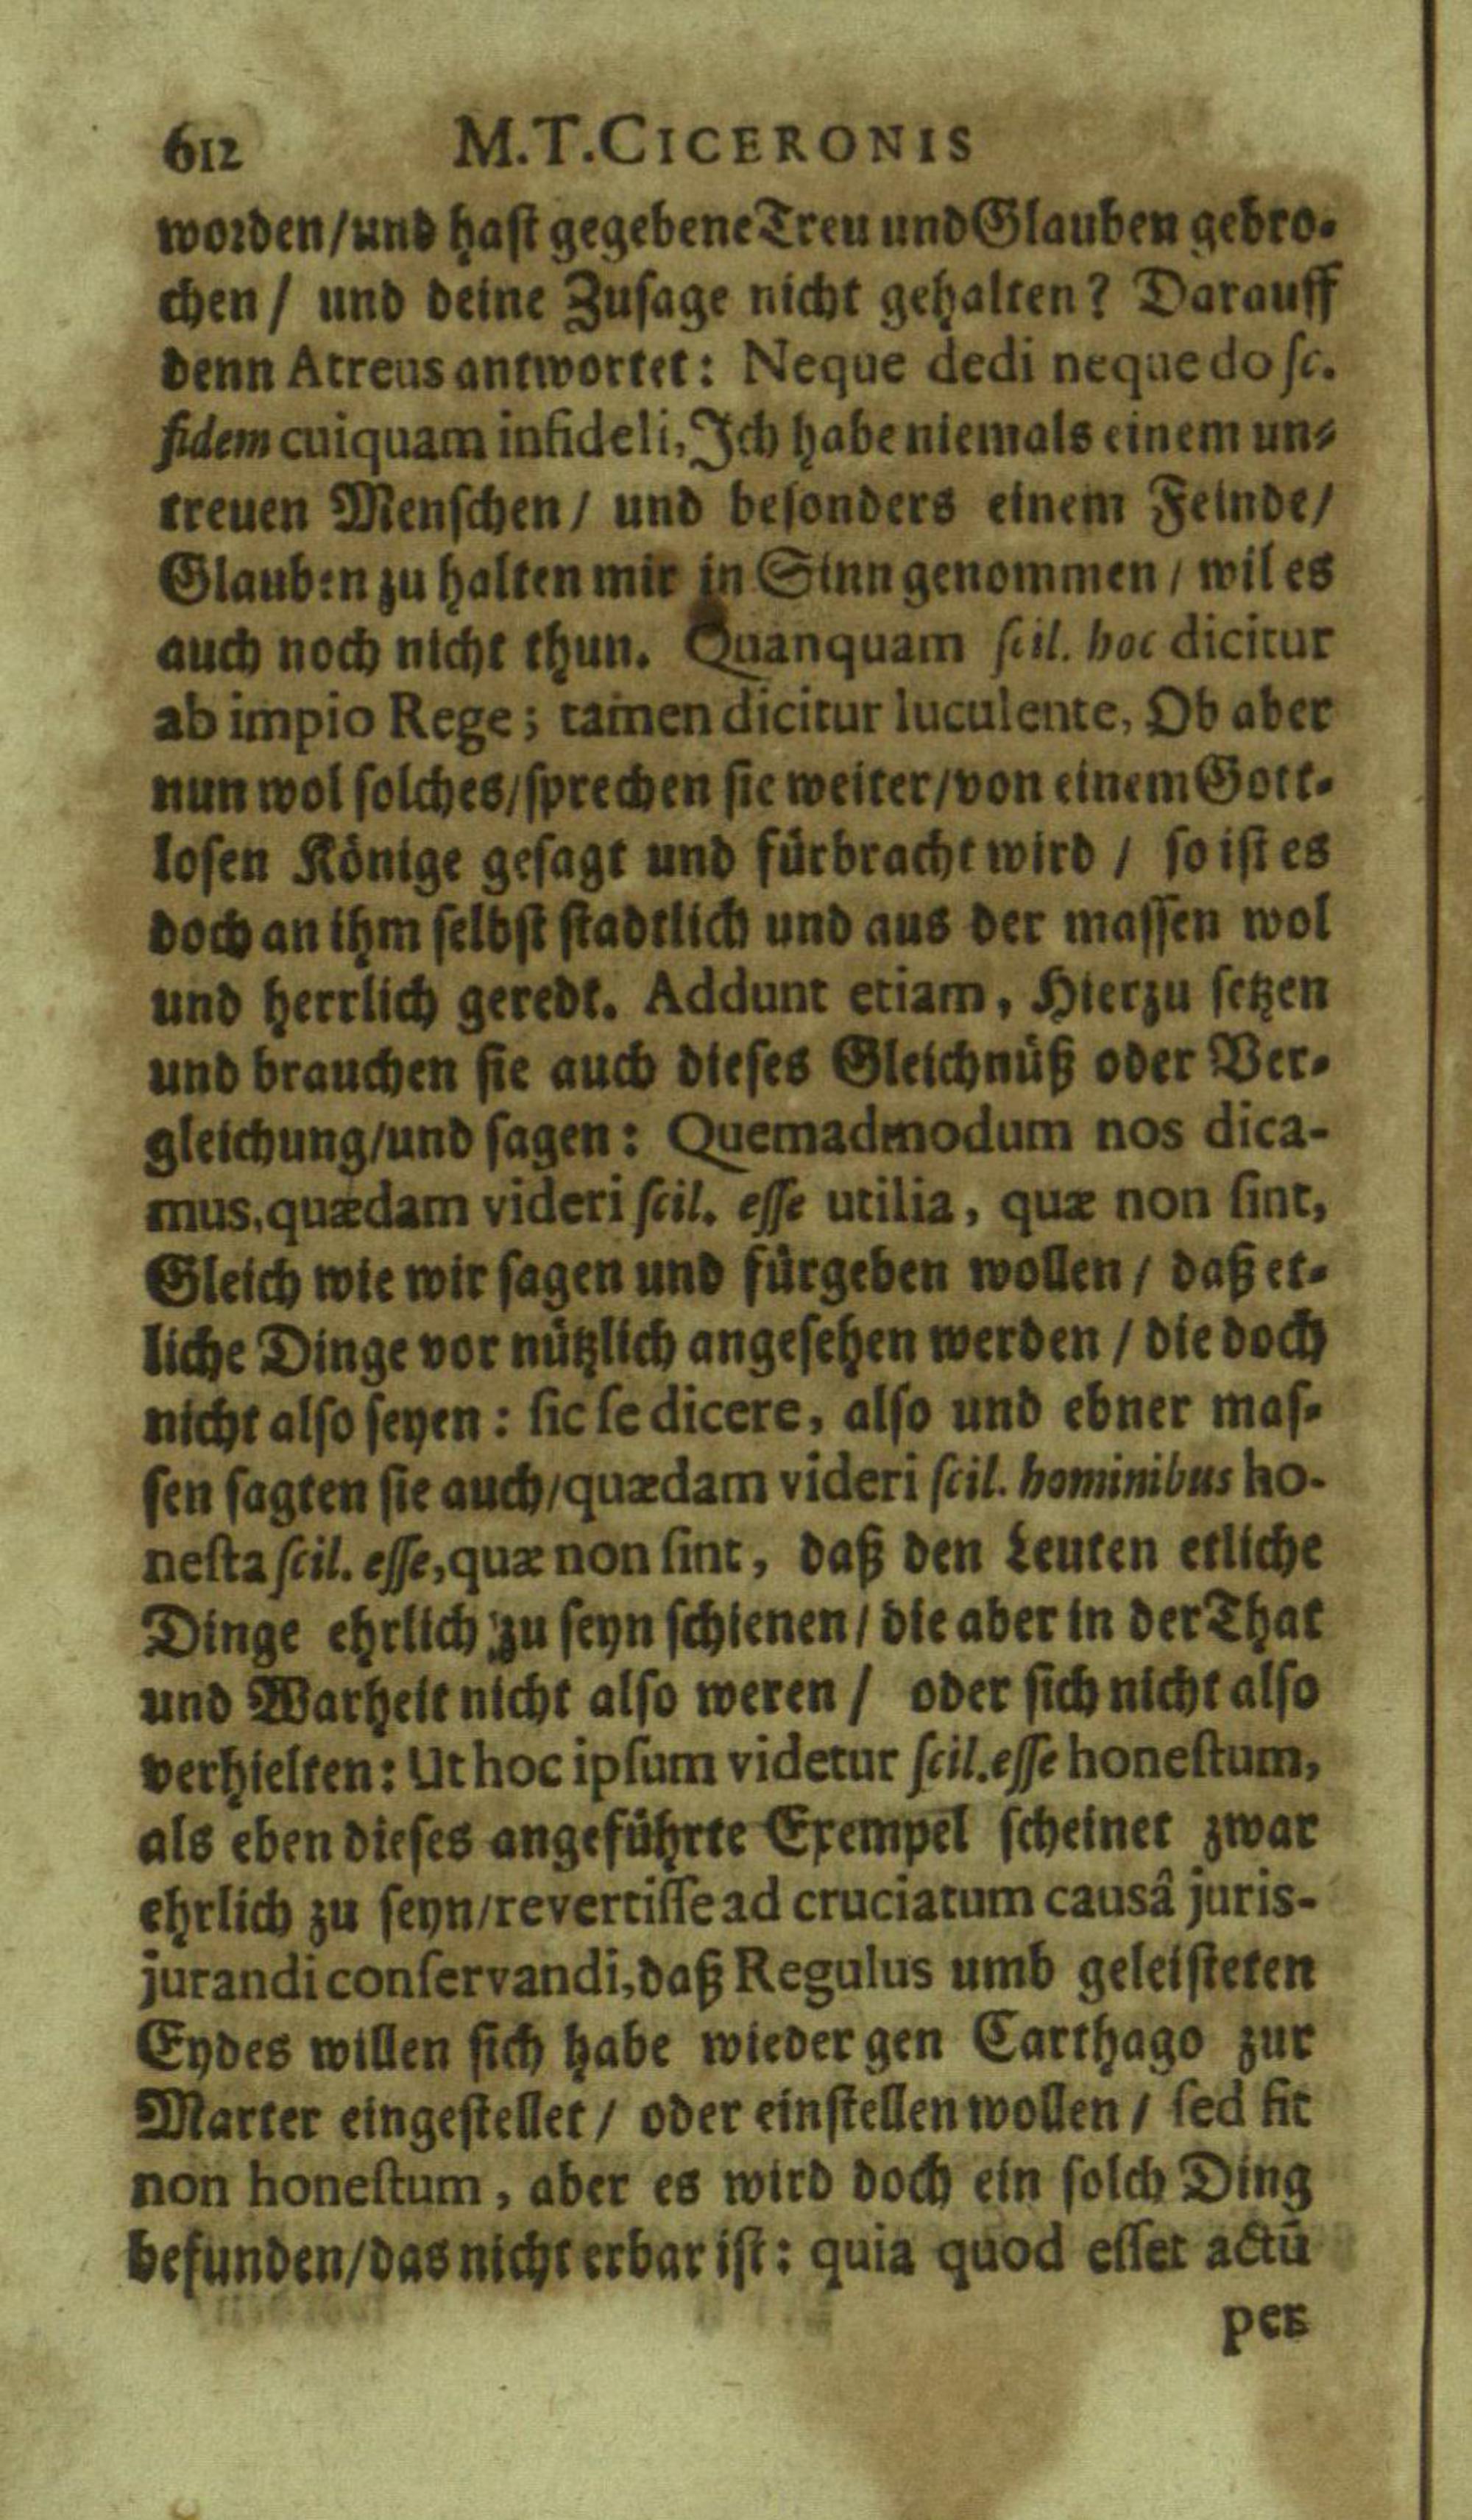 612 M.T.CICERONIS
worden/und haſt gegebene Treu und Glauben gebro-
chen/ und deine Zuſage nicht gehalten? Darauff
denn Atreus antwortet: Neque dedi neque do ſc.
fidem cuiquam infideli, Jch habe niemals einem un-
treuen Menſchen/ und beſonders einem Feinde/
Glauben zu halten mir in Sinn genommen/ wil es
auch noch nicht thun. Quanquam ſcil. hoc dicitur
ab impio Rege; tamen dicitur luculente, Ob aber
nun wol ſolches/ſprechen ſie weiter/von einem Gott-
loſen Könige geſagt und fürbracht wird/ ſo iſt es
doch an ihm ſelbſt ſtadtlich und aus der maſſen wol
und herrlich geredt. Addunt etiam, Hierzu ſetzen
und brauchen ſie auch dieſes Gleichnüß oder Ver-
gleichung/und ſagen: Quemadmodum nos dica-
mus, quædam videri ſcil. eſſe utilia, quæ non ſint,
Gleich wie wir ſagen und fürgeben wollen/ daß et-
liche Dinge vor nützlich angeſehen werden/ die doch
nicht alſo ſeyen: ſic ſe dicere, alſo und ebner maſ-
ſen ſagten ſie auch/quædam videri ſcil. hominibus ho-
neſta ſcil. eſſe, quæ non ſint, daß den Leuten etliche
Dinge ehrlich zu ſeyn ſchienen/ die aber in der That
und Warheit nicht alſo weren/ oder ſich nicht alſo
verhielten: Ut hoc ipſum videtur ſcil. eſſe honeſtum,
als eben dieſes angeführte Exempel ſcheinet zwar
ehrlich zu ſeyn/revertiſſe ad cruciatum causâ juris-
jurandi conſervandi, daß Regulus umb geleiſteten
Eydes willen ſich habe wieder gen Carthago zur
Marter eingeſtellet/ oder einſtellen wollen/ ſed fit
non honeſtum, aber es wird doch ein ſolch Ding
befunden/das nicht erbar iſt: quia quod eſſet actū
per